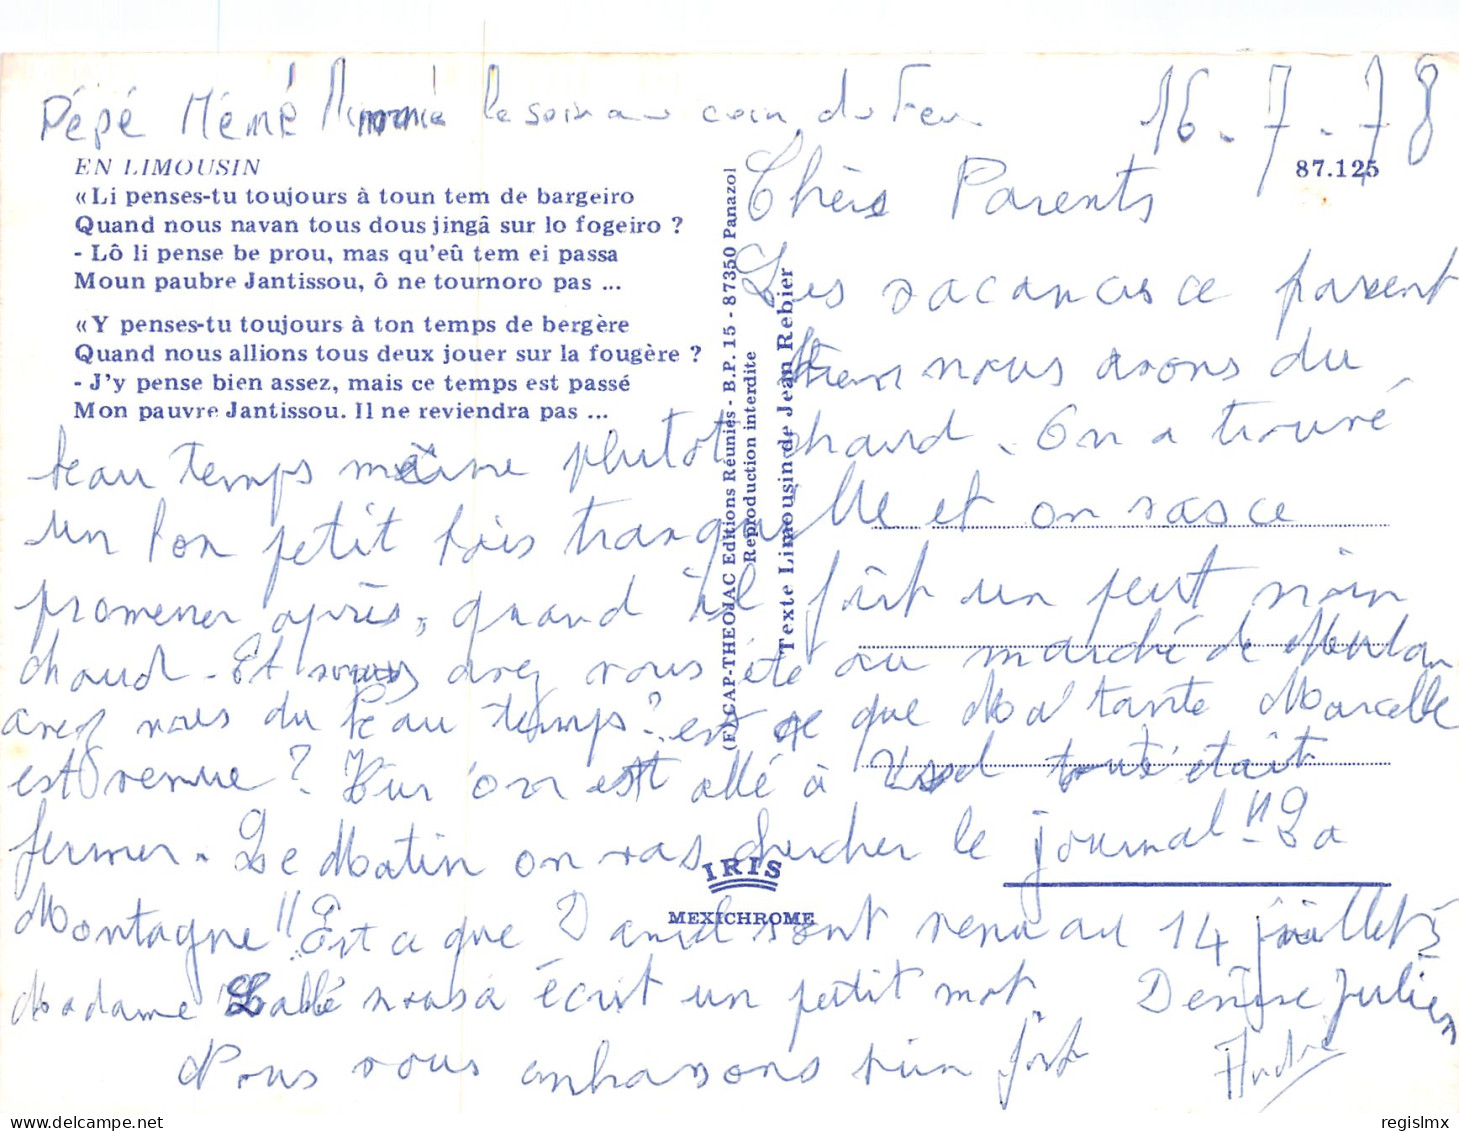 Pépé Mémé le soir au coin du Feu.
16.7.78
EN LIMOUSIN
87.125
«Li penses-tu toujours à toun tem de bargeiro
Quand nous navan tous dous jingâ sur lo fogeiro ?
- Lô li pense be prou, mas qu'eû tem ei passa
Moun paubre Jantissou, ô ne tournoro pas ...
«Y penses-tu toujours à ton temps de bergère
Quand nous allions tous deux jouer sur la fougère ?
- J'y pense bien assez, mais ce temps est passé
Mon pauvre Jantissou. Il ne reviendra pas ...
(F) CAP-THEOJAC Editions Réunies - B.P. 15 - 87350 Panazol
Reproduction interdite
Texte Limousin de Jean Rebier
IRIS
MEXICHROME
Chèrs Parents
Les vacances ce passent
bien nous avons du
beau temps même plutot chaud. On a trouvé
un bon petit bois tranquille et on vas ce
promener après, quand il fait un peut moin
chaud. Et vous avez vous été au marché de Meulan
avez vous du beau temps? est ce que Ma tante Marcelle
est venue? Hier on est allé à tout était
fermer. Le Matin on vas chercher le journal "La
Montagne" Est ce que Daniel sont venu au 14 juillet?
Madame Lallé nous a écrit un petit mot
Denise Julien
Nous vous embrassons bien fort
André
regislmx